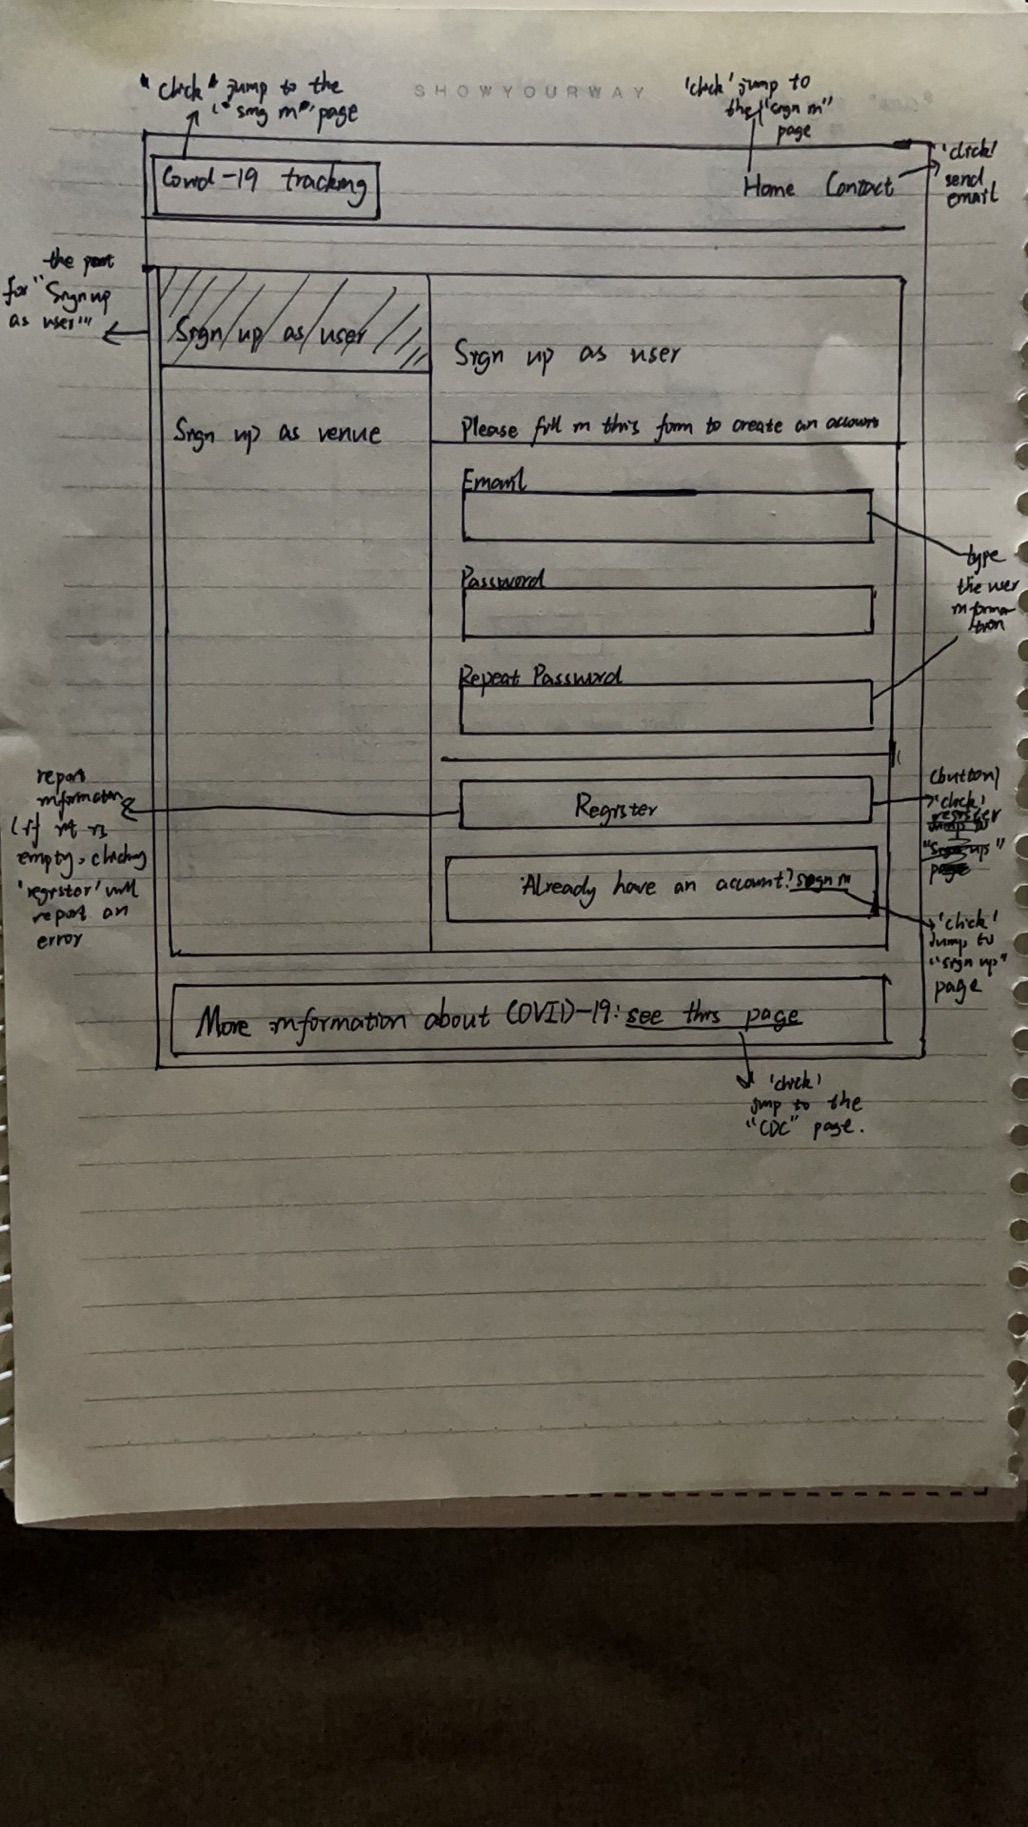 SHOWYOURWAY
"click" jump to the
"sing in" page
'click' jump to
the "sign in"
page
Covid-19 tracking
Home Contact
'click'
send
email
the part
for "Sign up
as user"
Sign up as user
Sign up as user
Sign up as venue
Please fill in this form to create an account
Email
Password
Repeat Password
type
the user
informa-
tion
report
information
(if it is
empty, clicking
'register' will
report an
error
Register
(button)
'click'
register
jump to
"Sign up"
page
Already have an account? sign in
'click'
jump to
"sign up"
page
More information about COVID-19: see this page
'click'
jmp to the
"CDC" page.